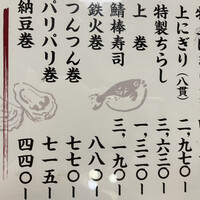 上にぎり（八貫） 二、九七〇ー
特製ちらし 三、六三〇ー
上巻 一、三二〇ー
鯖棒寿司 三、一九〇ー
鉄火巻 八八〇ー
つんつん巻 七七〇ー
パリパリ巻 七一五ー
納豆巻 四四〇ー